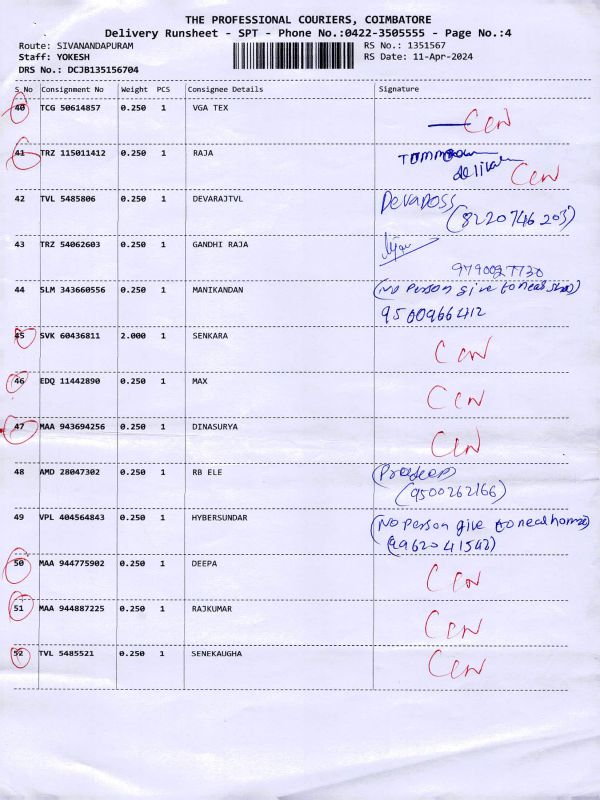 THE PROFESSIONAL COURIERS, COIMBATORE
Delivery Runsheet - SPT - Phone No.:0422-3505555 - Page No.:4
Route: SIVANANDAPURAM RS No.: 1351567
Staff: YOKESH RS Date: 11-Apr-2024
DRS No.: DCJB135156704
S.No Consignment No Weight PCS Consignee Details Signature
40 TCG 50614857 0.250 1 VGA TEX
41 TRZ 115011412 0.250 1 RAJA
42 TVL 5485806 0.250 1 DEVARAJTVL Devadoss
(8220746203)
43 TRZ 54062603 0.250 1 GANDHI RAJA
9790027730
44 SLM 343660556 0.250 1 MANIKANDAN (No Person give to near
9500966412
45 SVK 60436811 2.000 1 SENKARA
46 EDQ 11442890 0.250 1 MAX
47 MAA 943694256 0.250 1 DINASURYA
48 AMD 28047302 0.250 1 RB ELE (Pradeep)
(9500262166)
49 VPL 404564843 0.250 1 HYBERSUNDAR (No Person give to near home)
(9962041542)
50 MAA 944775902 0.250 1 DEEPA
51 MAA 944887225 0.250 1 RAJKUMAR
52 TVL 5485521 0.250 1 SENEKAUGHA